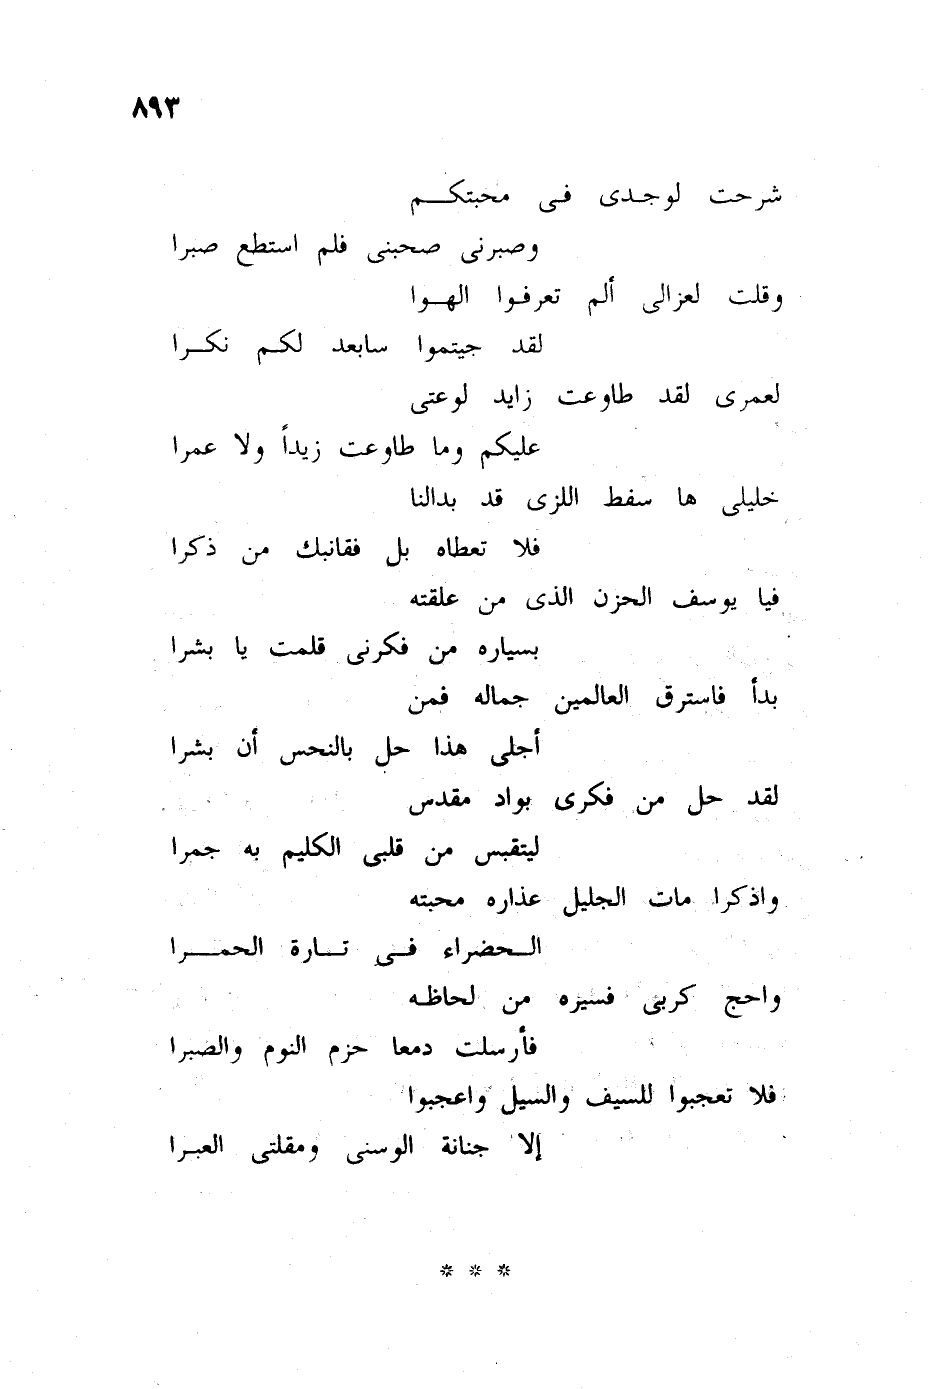 ٨٩٣
شرحت لوجدى فى محبتكم
وصبرنى صحبنى فلم استطع صبرا
وقلت لعزالى ألم تعرفوا الهوا
لقد جيتموا سابعد لكم نكرا
لعمرى لقد طاوعت زايد لوعتى
عليكم وما طاوعت زيداً ولا عمرا
خليلى ها سفط اللزى قد بدالنا
فلا تعطاه بل فقانبك من ذكرا
فيا يوسف الحزن الذى من علقته
بسياره من فكرنى قلمت يا بشرا
بدأ فاسترق العالمين جماله فمن
أجلى هذا حل بالنحس أن بشرا
لقد حل من فكرى بواد مقدس
ليتقبس من قلبى الكليم به جمرا
واذكرا مات الجليل عذاره محبته
الحضراء فى تارة الحمرا
واحج كربى فسيره من لحاظه
فأرسلت دمعا حزم النوم والصبرا
فلا تعجبوا للسيف والسيل واعجبوا
إلا جنانة الوسنى ومقلتى العبرا
* * *